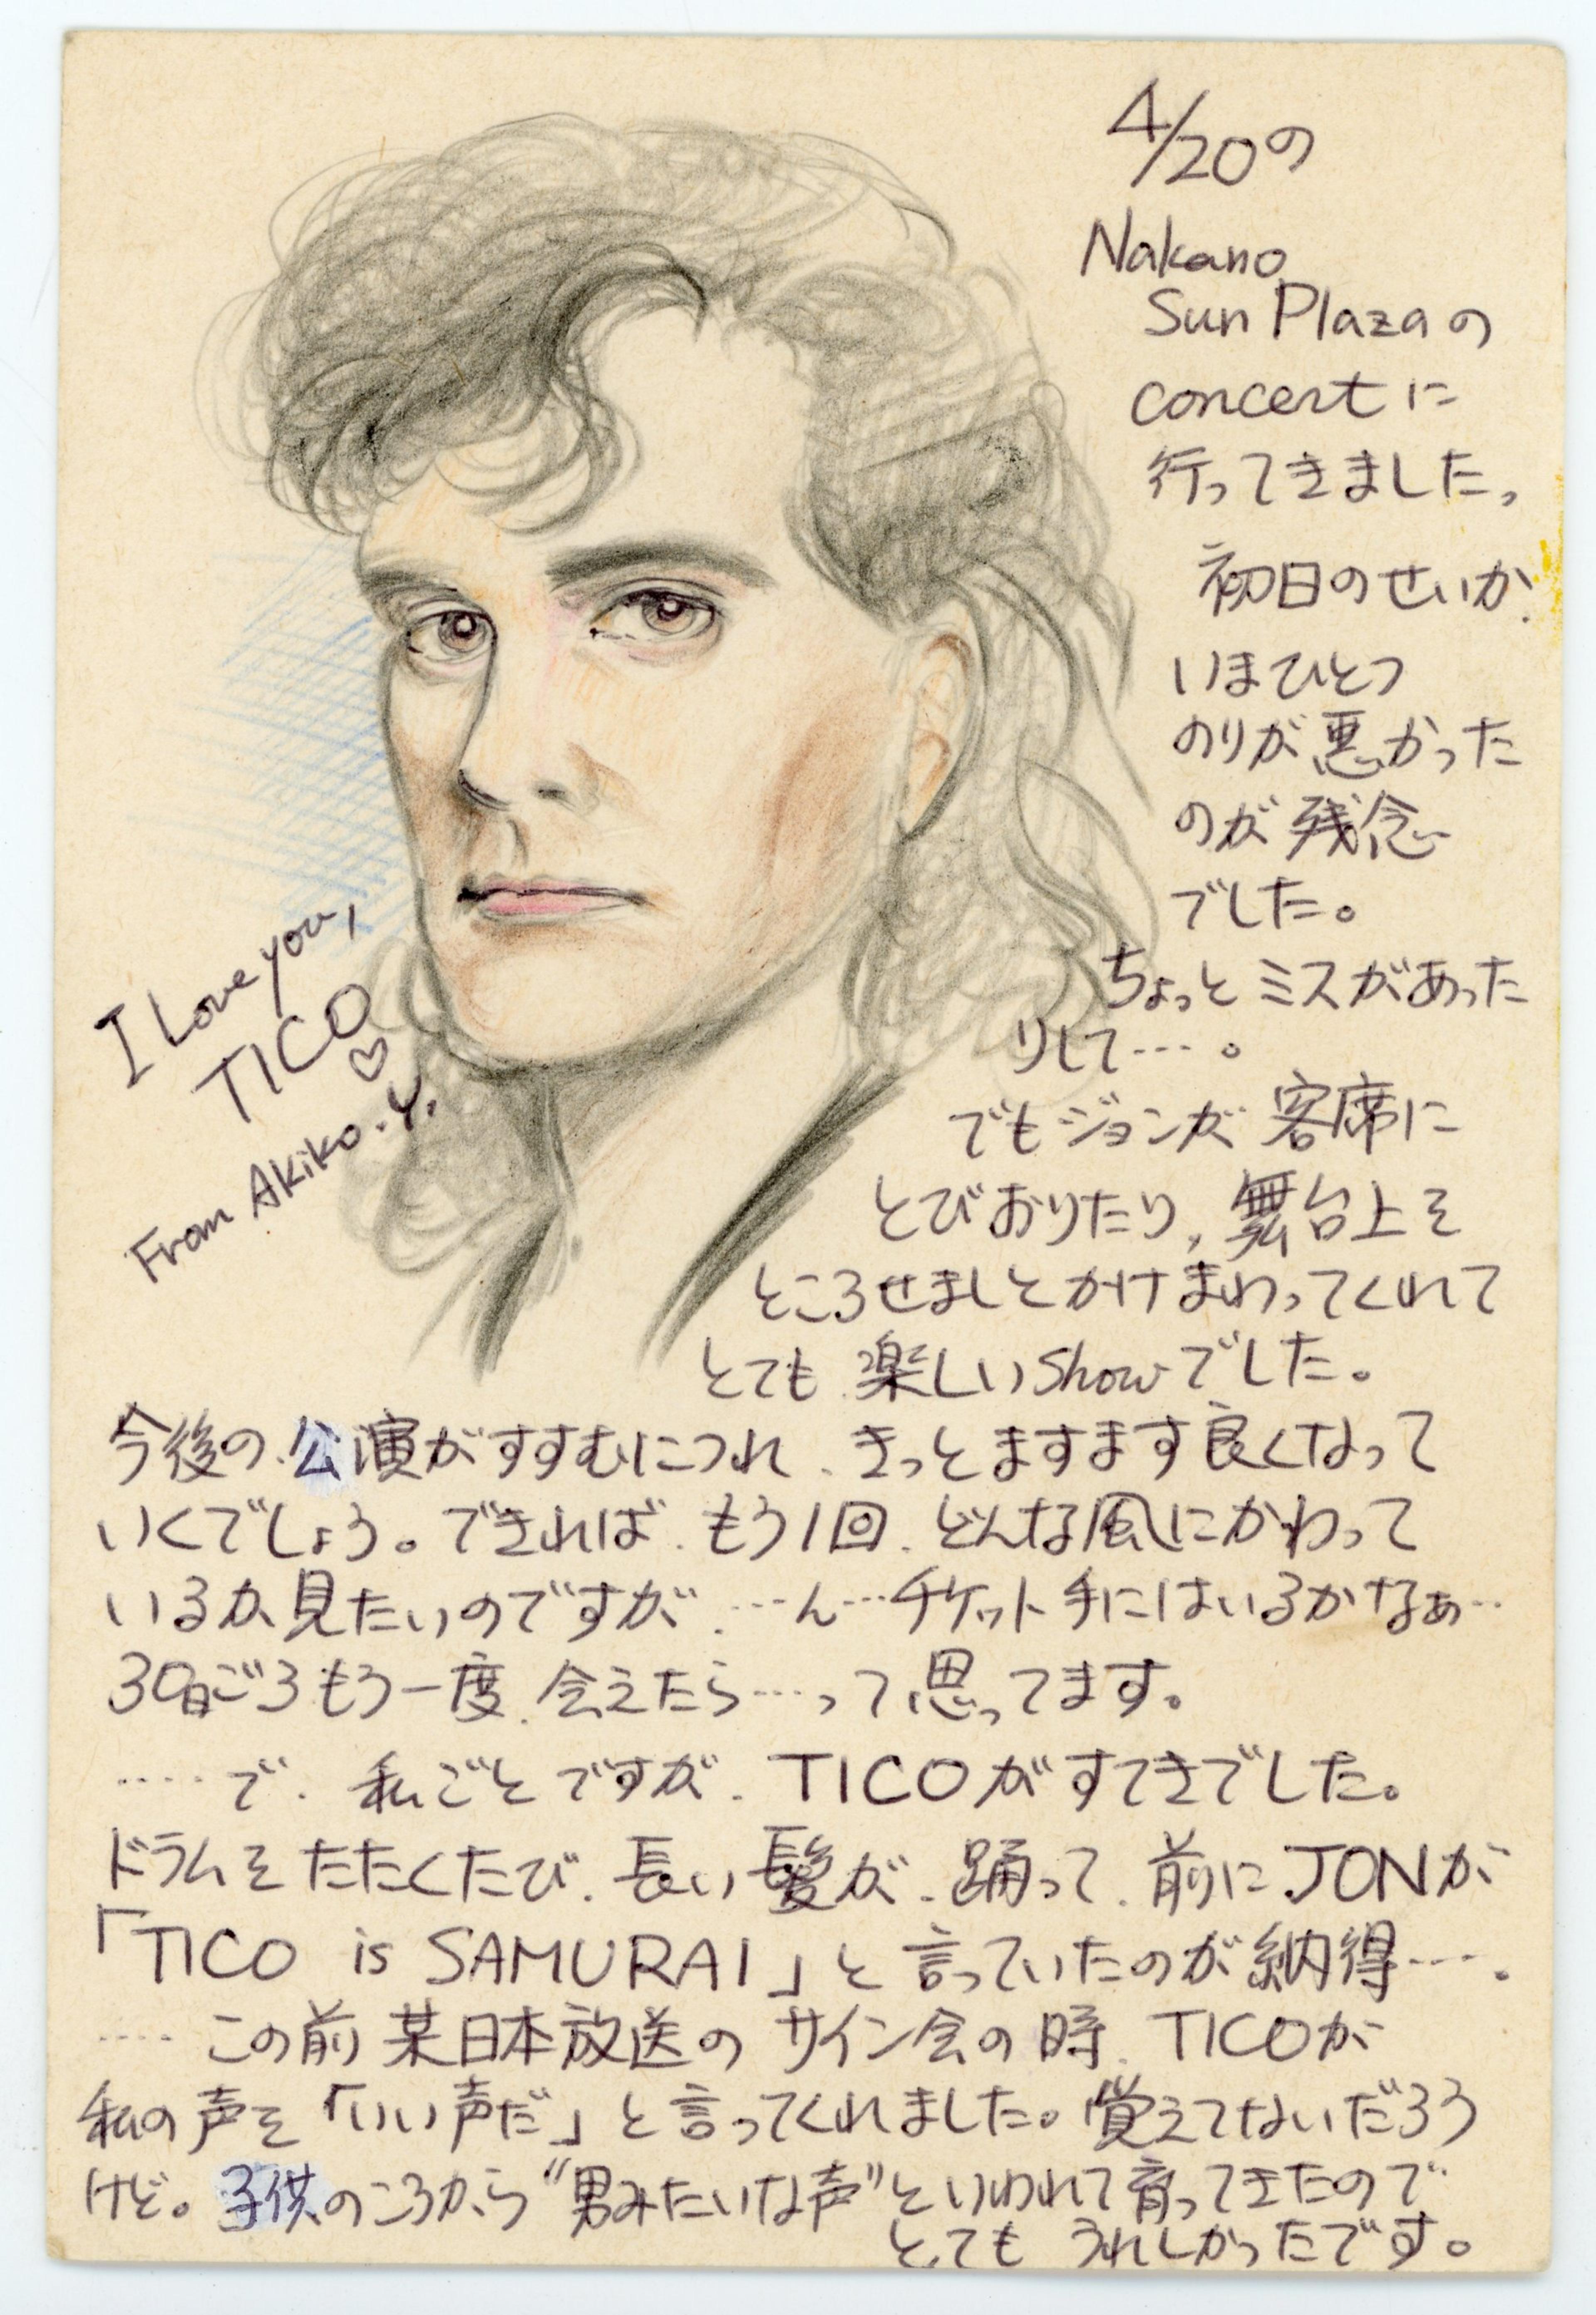 4/20の
Nakano
Sun Plazaの
concertに
行ってきました。
初日のせいか、
いまひとつ
のりが悪かった
のが残念
でした。
ちょっとミスがあった
りして…。
でもジョンが客席に
とびおりたり、舞台上を
ところせましとかけまわってくれて
とても楽しいShowでした。
I Love you,
TICO
♡
From Akiko.Y.
今後の公演がすすむにつれ、きっとますます良くなって
いくでしょう。できれば、もう1回、どんな風にかわって
いるか見たいのですが、…ん…チケット手にはいるかなぁ…
30日ごろもう一度、会えたら…って思ってます。
……で、私ごとですが、TICOがすてきでした。
ドラムをたたくたび、長い髪が、踊って、前にJONが
「TICO is SAMURAI」と言っていたのが納得…。
……この前某日本放送のサイン会の時、TICOが
私の声を「いい声だ」と言ってくれました。覚えてないだろう
けど。子供のころから“男みたいな声”といわれて育ってきたので
とてもうれしかったです。